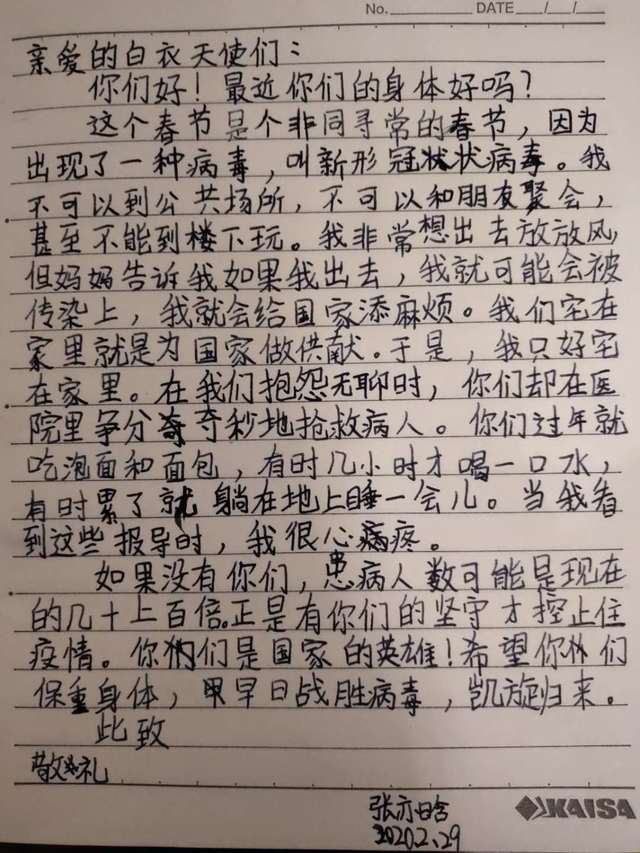 No. DATE / /
亲爱的白衣天使们：
你们好！最近你们的身体好吗？
这个春节是个非同寻常的春节，因为
出现了一种病毒，叫新形冠状状病毒。我
不可以到公共场所，不可以和朋友聚会，
甚至不能到楼下玩。我非常想出去放放风，
但妈妈告诉我如果我出去，我就可能会被
传染上，我就会给国家添麻烦。我们宅在
家里就是为国家做供献。于是，我只好宅
在家里。在我们抱怨无聊时，你们却在医
院里争分夺秒地抢救病人。你们过年就
吃泡面和面包，有时几小时才喝一口水，
有时累了就躺在地上睡一会儿。当我看
到这些报导时，我很心疼。
如果没有你们，患病人数可能是现在
的几十上百倍。正是有你们的坚守才控止住
疫情。你们是国家的英雄！希望你们
保重身体，早日战胜病毒，凯旋归来。
此致
敬礼
张亦晗
2020.2.29
KAISA